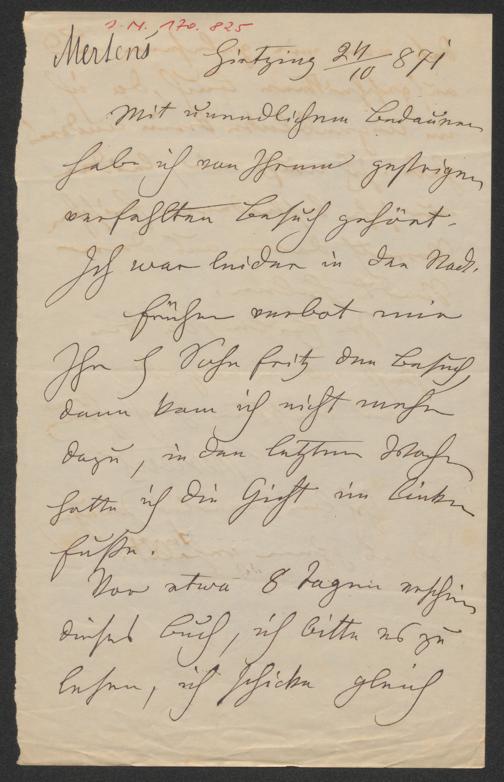 J. N. 170.825
Mertens
Hietzing 24/10 871
Mit unendlichem Bedauern
habe ich von Ihrem gestrigen
verfehlten Besuch gehört.
Ich war leider in der Stadt.
früher verbot mir
Ihr H Sohn Fritz den Besuch,
dann kam ich nicht mehr
dazu, in der letzten Woche
hatte ich die Gicht im linken
Fuße.
Vor etwa 8 Tagen erschien
dieses Buch, ich bitte es zu
lesen, ich schicke gleich